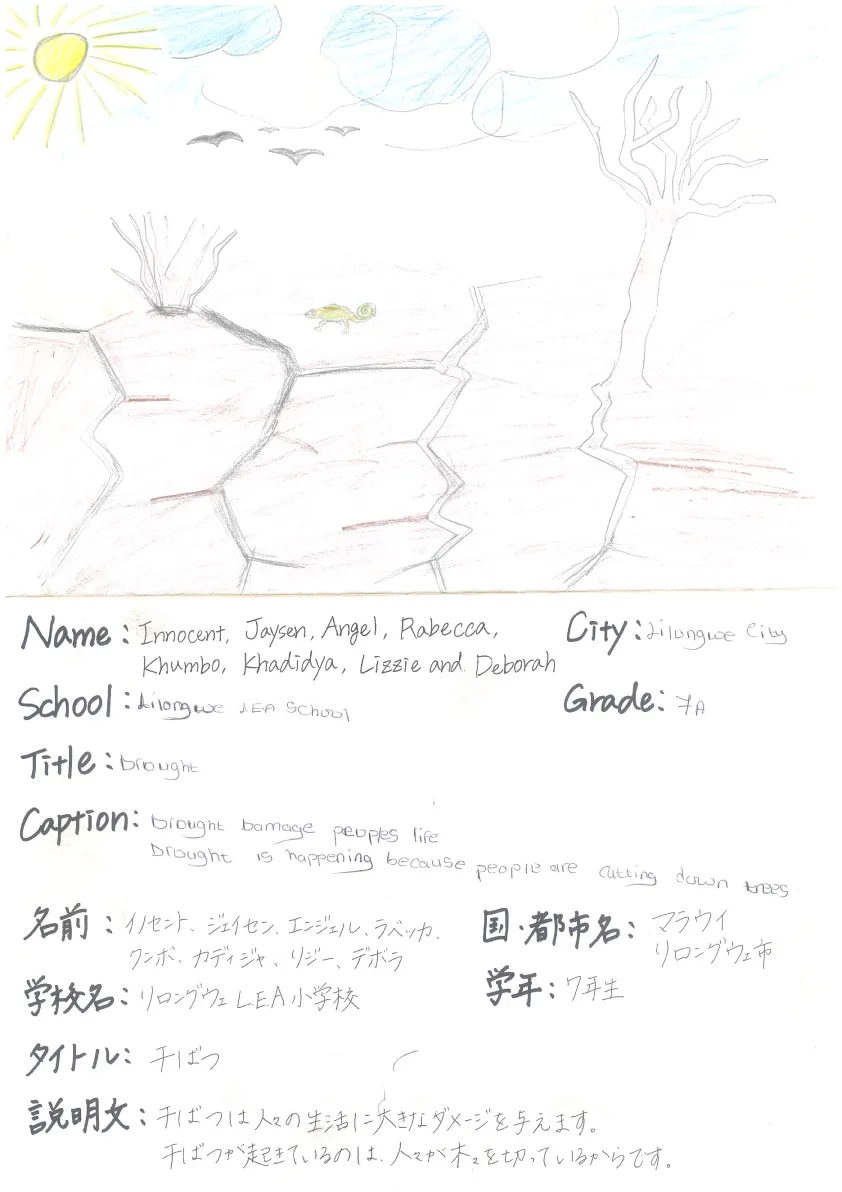 Name: Innocent, Jaysen, Angel, Rabecca,
Khumbo, Khadidya, Lizzie and Deborah
City: Lilongwe City
School: Lilongwe LEA School
Grade: 7A
Title: Drought
Caption: Drought Damage peoples life
Drought is happening because people are cutting down trees
名前: イノセント、ジェイセン、エンジェル、ラベッカ、
クンボ、カディジャ、リジー、デボラ
国・都市名: マラウイ
リロングウェ市
学校名: リロングウェ L.E.A 小学校
学年: 7年生
タイトル: 干ばつ
説明文: 干ばつは人々の生活に大きなダメージを与えます。
干ばつが起きているのは、人々が木々を切っているからです。